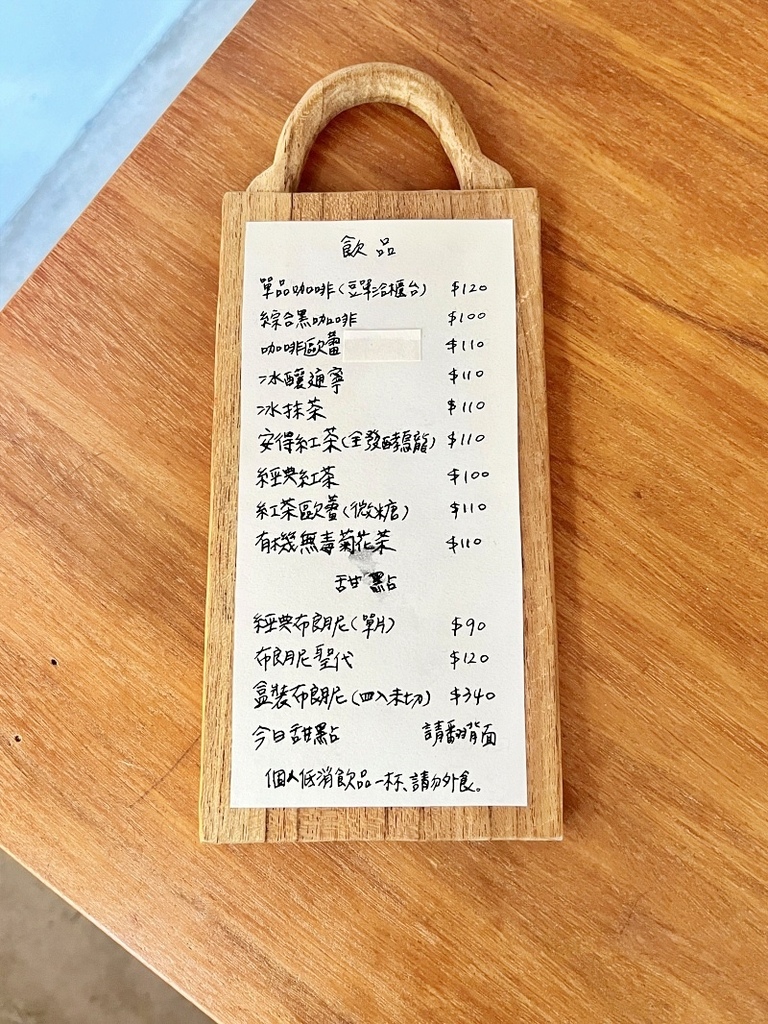 飲品
單品咖啡(豆單洽櫃台) $120
綜合黑咖啡 $100
咖啡歐蕾 $110
冰釀通寧 $110
冰抹茶 $110
安得紅茶(全發酵烏龍) $110
經典紅茶 $100
紅茶歐蕾(微糖) $110
有機無毒菊花茶 $110
甜點
經典布朗尼(單片) $90
布朗尼聖代 $120
盒裝布朗尼(四入未切) $340
今日甜點 請翻背面
個人低消飲品一杯、請勿外食。